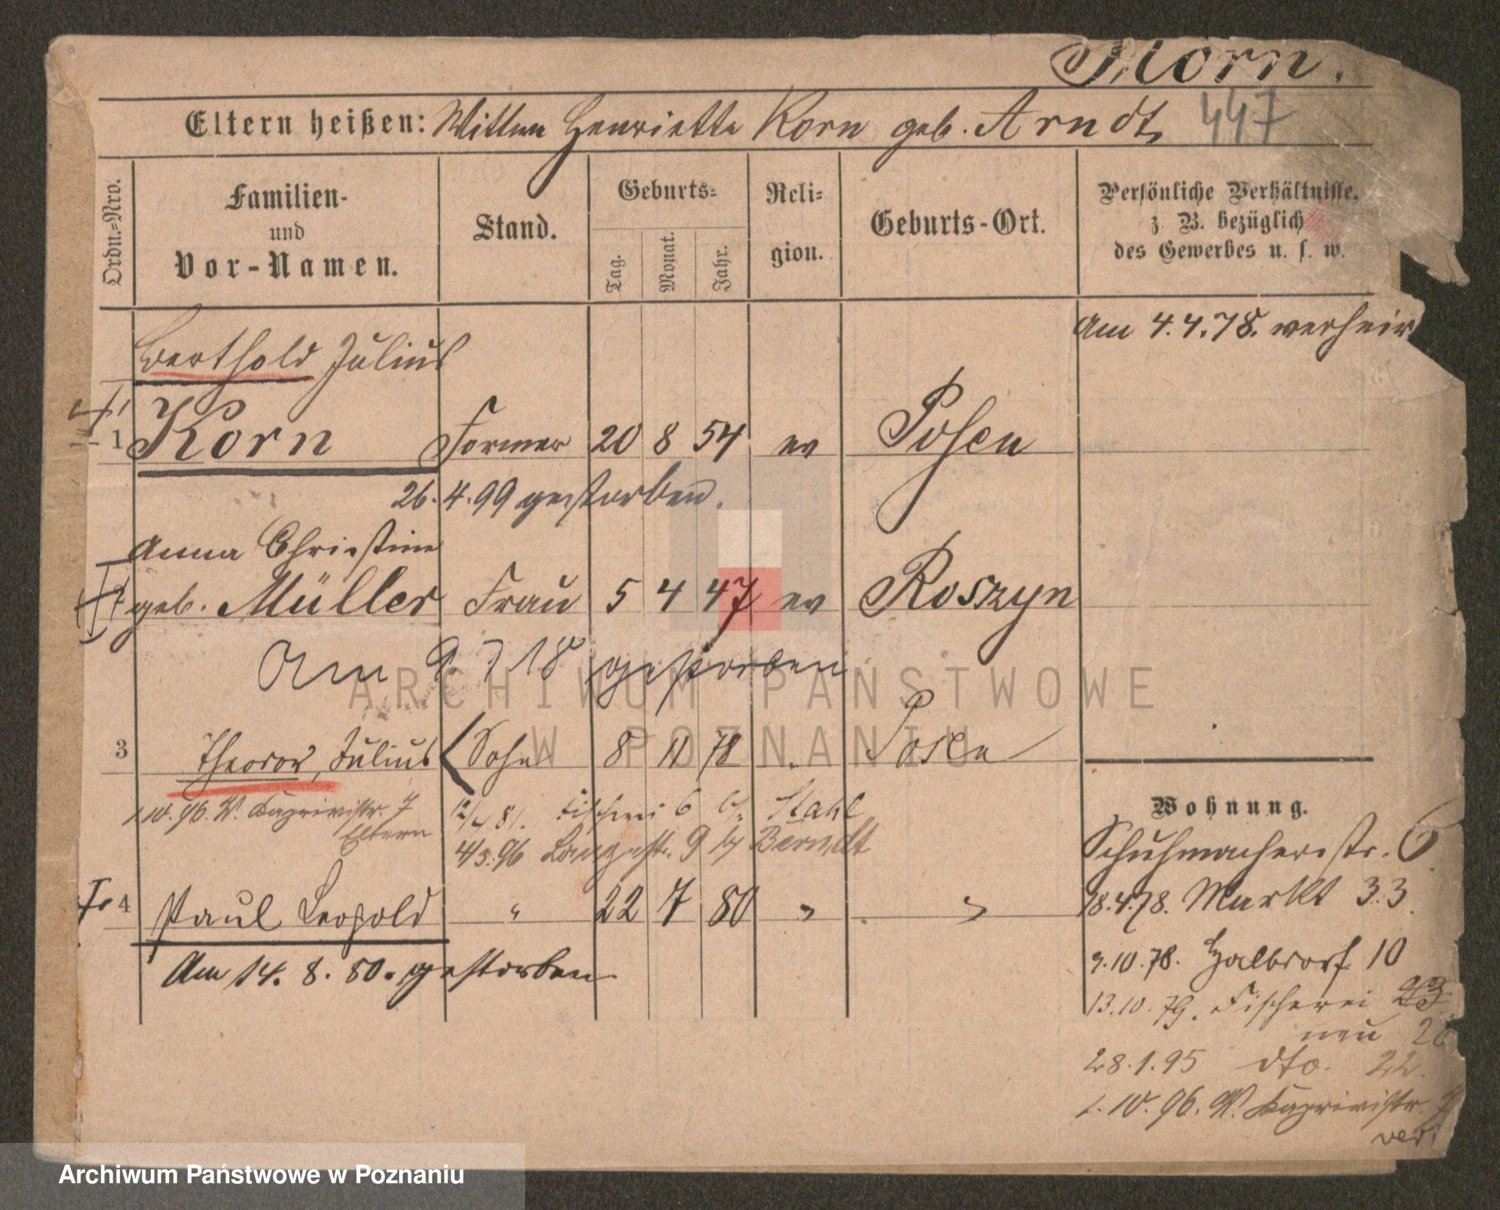 Korn.
Eltern heißen: Wittwe Henriette Korn geb. Arndt, 447
Ordn.-Nro.
Familien- und Vor-Namen.
Stand.
Geburts-
Tag. Monat. Jahr.
Reli- gion.
Geburts-Ort.
Persönliche Verhältnisse, z. B. bezüglich des Gewerbes u. s. w.
Berthold Julius
Am 4.4.78. verheir
1 Korn Former 20 8 54 ev Posen
26.4.99 gestorben.
Anna Christine
geb. Müller Frau 5 4 47 ev Roszyn
Am 9 7 18 gestorben
3 Theodor, Julius Sohn 8 11 78 Posen
1.10.96. W. Kaprivistr. 7
Eltern
81. Fischerei 6 bei Stahl
4/3.96 Langestr. 9 by Berndt
4 Paul Leopold " 22 7 80 " "
Am 14. 8. 80. gestorben
Wohnung.
Schuhmacherstr. 6
18.4.78. Markt 33.
9.10.78. Halbdorf 10
13.10.79. Fischerei 23
neu
28.1.95 dto. 22.
1.10.96. W. Kaprivistr. 7
ARCHIWUM PAŃSTWOWE
W POZNANIU
Archiwum Państwowe w Poznaniu